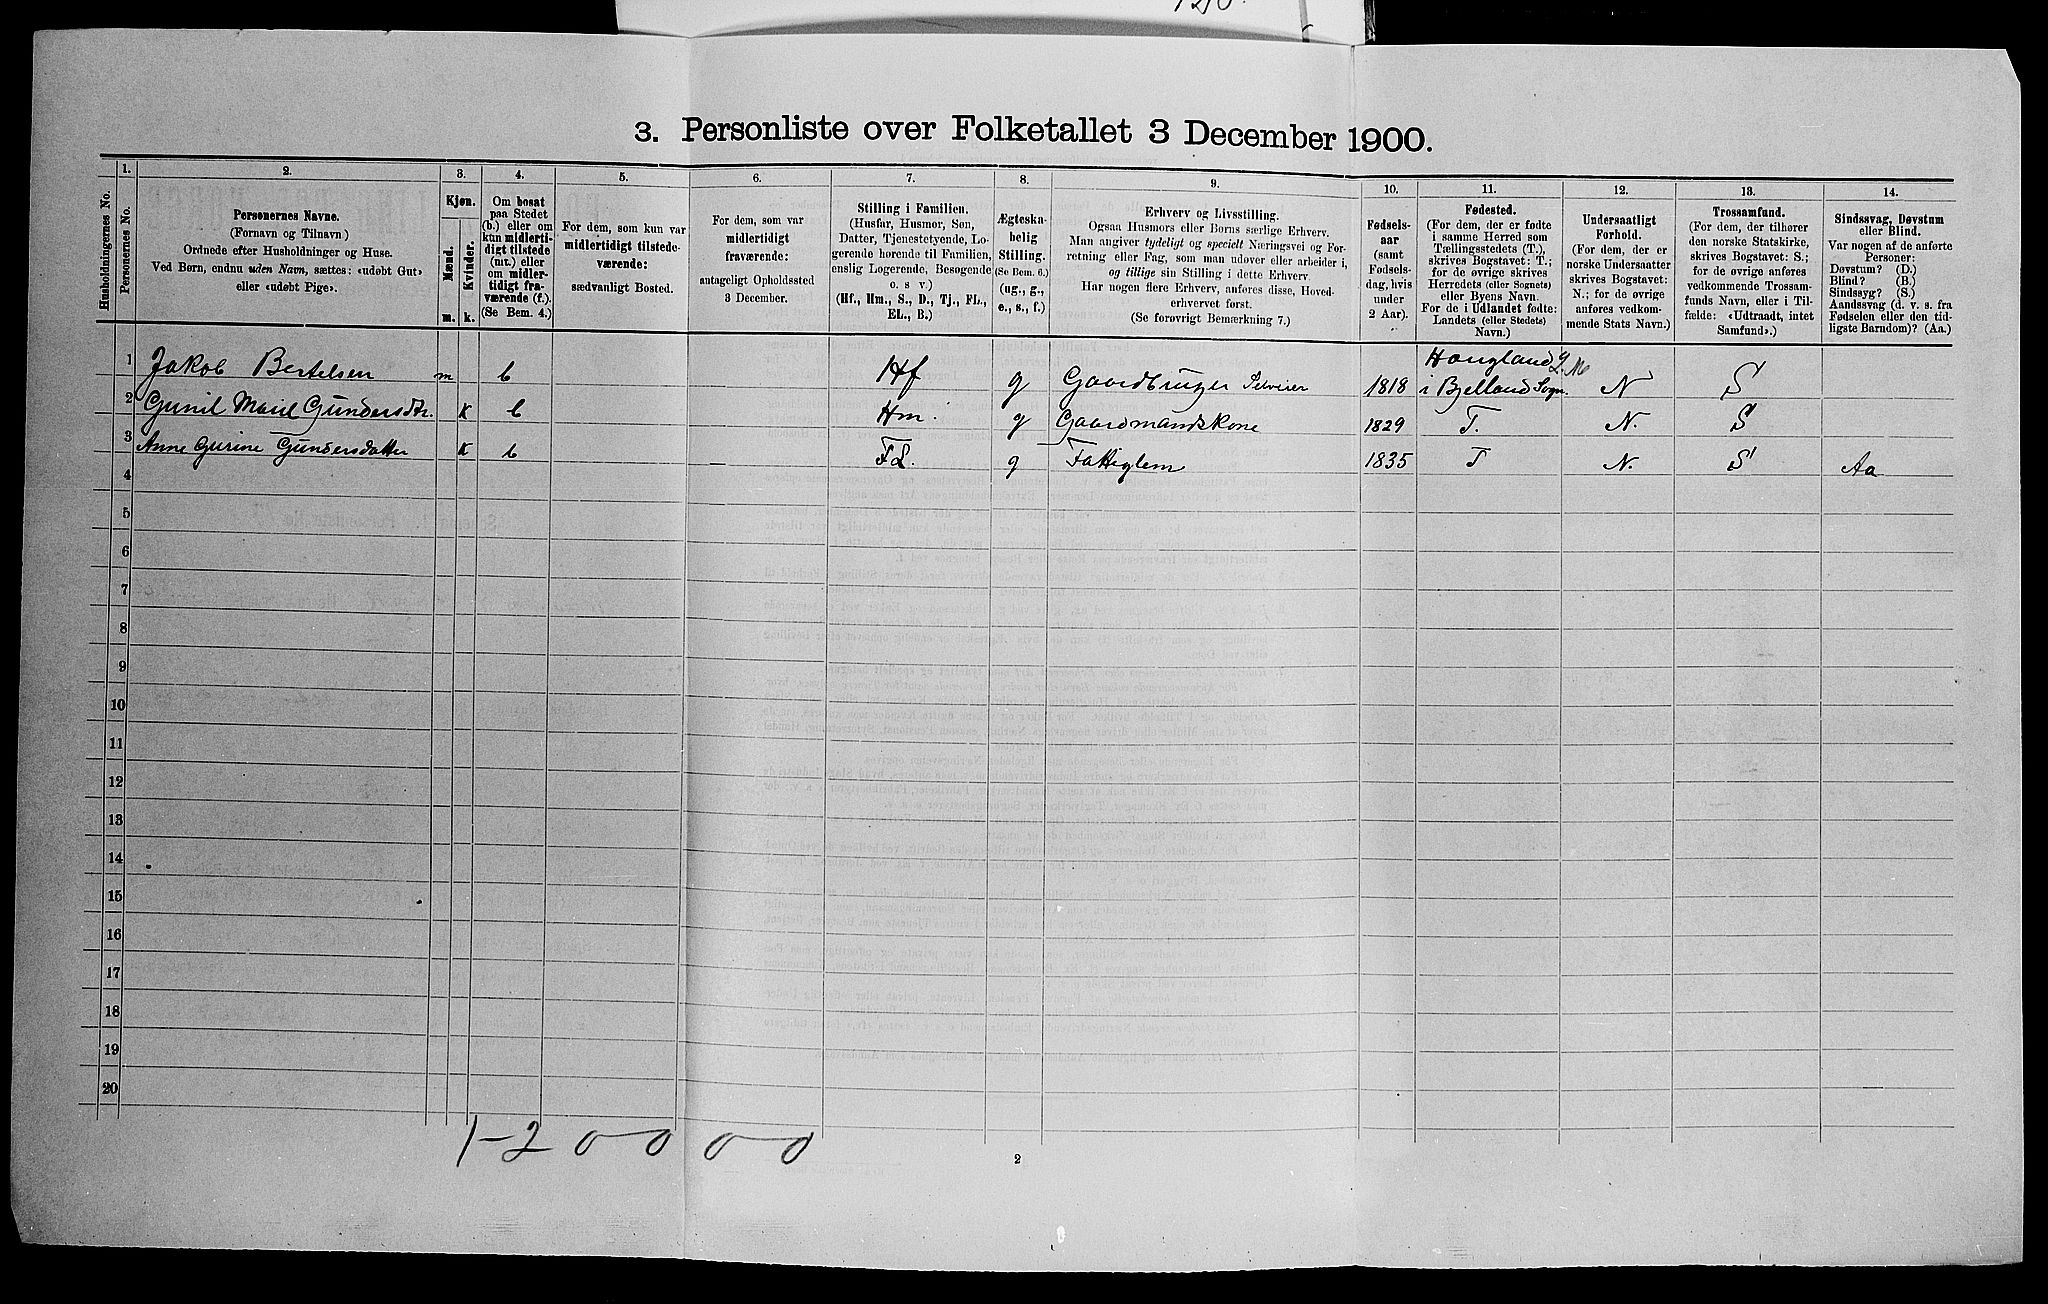 3. Personliste over Folketallet 3 December 1900.
Husholdningernes No.
1.
Personernes No.
2.
Personernes Navne.
(Fornavn og Tilnavn)
Ordnede efter Husholdninger og Huse.
Ved Børn, endnu uden Navn, sættes: «udøbt Gut»
eller «udøbt Pige».
3.
Kjøn.
Mænd.
Kvinder.
m.
k.
4.
Om bosat
paa Stedet
(b.) eller om
kun midlerti-
digt tilstede
(mt.) eller
om midler-
tidigt fra-
værende (f.).
(Se Bem. 4.)
5.
For dem, som kun var
midlertidigt tilstede-
værende:
sædvanligt Bosted.
6.
For dem, som var
midlertidigt
fraværende:
antageligt Opholdssted
3 December.
7.
Stilling i Familien.
(Husfar, Husmor, Søn,
Datter, Tjenestetyende, Lo-
gerende hørende til Familien,
enslig Logerende, Besøgende
o. s v.)
(Hf., Hm., S., D., Tj., FL.,
EL., B.)
8.
Ægteska-
belig
Stilling.
(Se Bem. 6.)
(ug., g.,
e., s., f.)
9.
Erhverv og Livsstilling.
Ogsaa Husmors eller Børns særlige Erhverv.
Man angiver tydeligt og specielt Næringsvei og For-
retning eller Fag, som man udøver eller arbeider i,
og tillige sin Stilling i dette Erhverv.
Har nogen flere Erhverv, anføres disse, Hoved-
erhvervet først.
(Se forøvrigt Bemærkning 7.)
10.
Fødsels-
aar
(samt
Fødsels-
dag, hvis
under
2 Aar).
11.
Fødested.
(For dem, der er fødte
i samme Herred som
Tællingsstedets (T.),
skrives Bogstavet: T.;
for de øvrige skrives
Herredets (eller Sognets)
eller Byens Navn.
For de i Udlandet fødte:
Landets (eller Stedets)
Navn.)
12.
Undersaatligt
Forhold.
(For dem, der er
norske Undersaatter
skrives Bogstavet:
N.; for de øvrige
anføres vedkom-
mende Stats Navn.)
13.
Trossamfund.
(For dem, der tilhører
den norske Statskirke,
skrives Bogstavet: S.;
for de øvrige anføres
vedkommende Trossam-
funds Navn, eller i Til-
fælde: «Udtraadt, intet
Samfund».)
14.
Sindssvag, Døvstum
eller Blind.
Var nogen af de anførte
Personer:
Døvstum? (D.)
Blind? (B.)
Sindssyg? (S.)
Aandssvag (d. v. s. fra
Fødselen eller den tid-
ligste Barndom)? (Aa.)
1 Jakob Bertelsen m b Hf g Gaardbruger Selveier 1818 Haugland
i Bjelland Sogn. N S
2 Gunil Marie Gundersdtr. K b Hm. g Gaardmandskone 1829 T. N. S
3 Anne Gurine Gundersdatter K b FL. g Fattiglem 1835 T N. S Aa
4
5
6
7
8
9
10
11
12
13
14
15
16
17
18
19
20
1-2 0-0 0-0
2